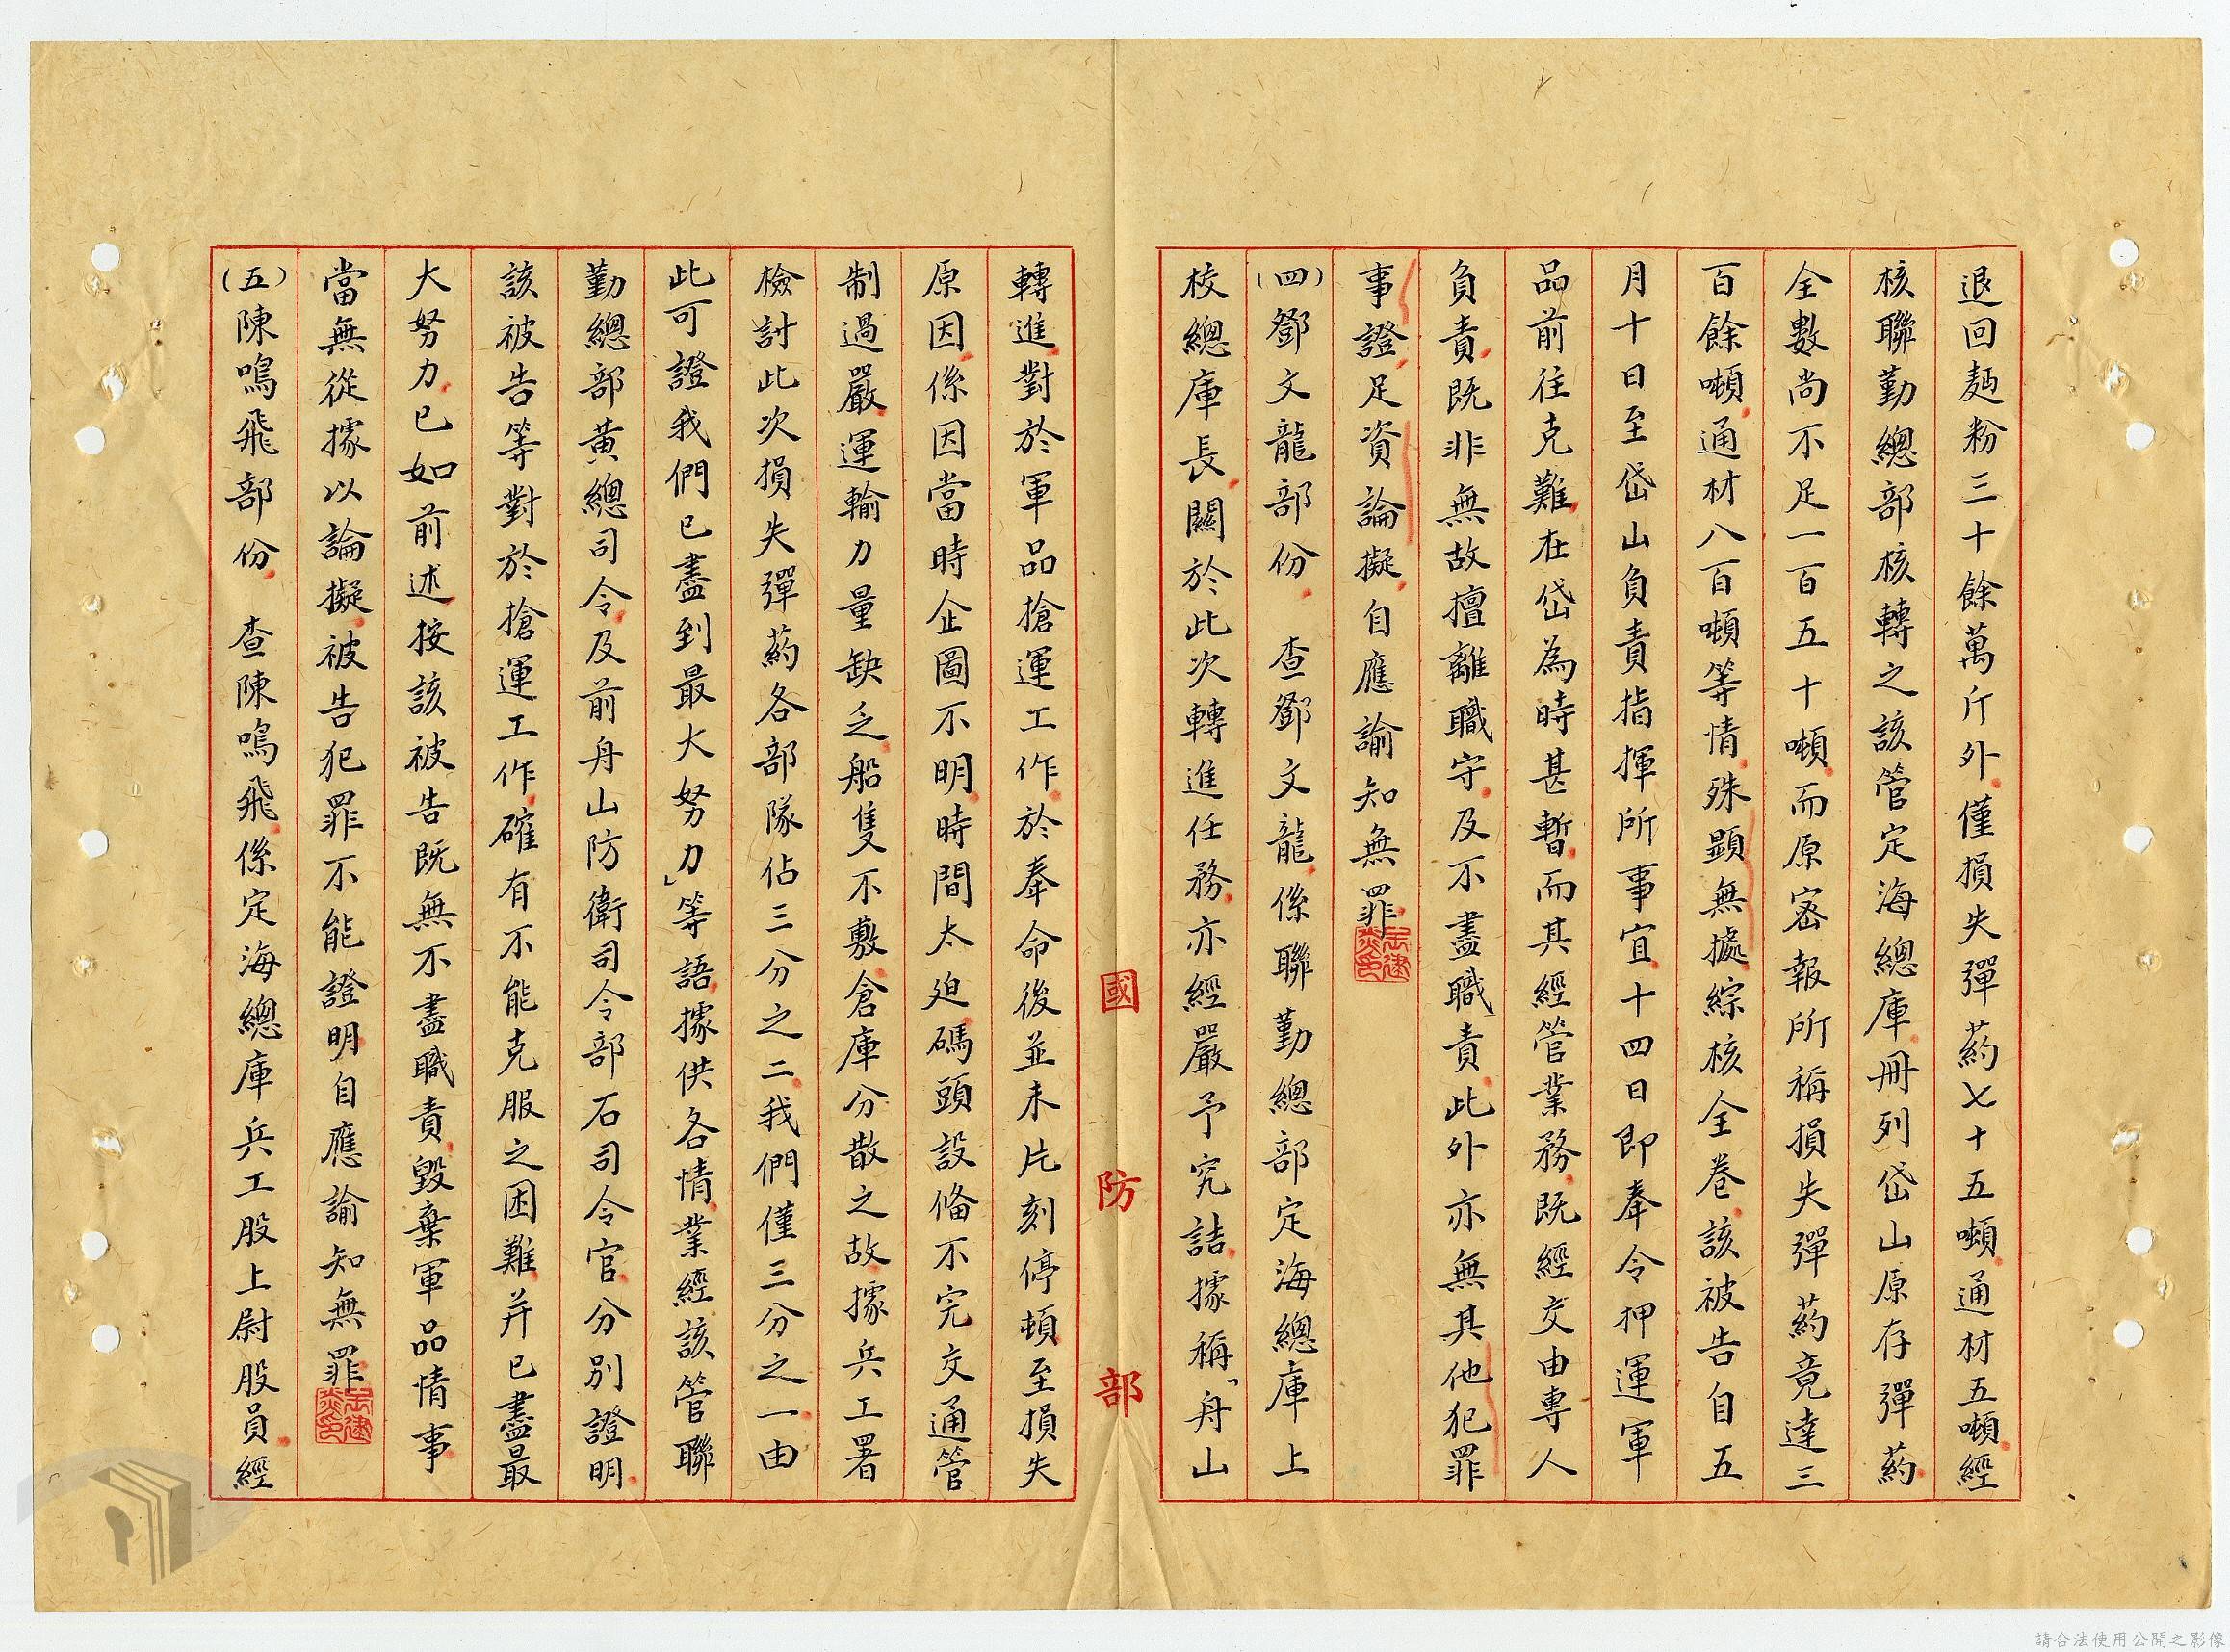 退回麵粉三十餘萬斤外僅損失彈葯七十五噸通材五噸經
核聯勤總部核轉之該管定海總庫冊列岱山原存彈葯
全數尚不足一百五十噸而原密報所稱損失彈葯竟達三
百餘噸通材八百噸等情殊顯無據綜核全卷該被告自五
月十日至岱山負責指揮所事宜十四日即奉令押運軍
品前往克難在岱為時甚暫而其經管業務既經交由專人
負責既非無故擅離職守及不盡職責此外亦無其他犯罪
事證足資論擬自應諭知無罪
(四)鄧文龍部份 查鄧文龍係聯勤總部定海總庫上
校總庫長關於此次轉進任務亦經嚴予究詰據稱「舟山
國防部
轉進對於軍品搶運工作於奉命後並未片刻停頓至損失
原因係因當時企圖不明時間太迫碼頭設備不完交通管
制過嚴運輸力量缺乏船隻不敷倉庫分散之故據兵工署
檢討此次損失彈葯各部隊佔三分之二我們僅三分之一由
此可證我們已盡到最大努力」等語據供各情業經該管聯
勤總部黃總司令及前舟山防衛司令部石司令官分別證明
該被告等對於搶運工作確有不能克服之困難并已盡最
大努力已如前述按該被告既無不盡職責毀棄軍品情事
當無從據以論擬被告犯罪不能證明自應諭知無罪
(五)陳鳴飛部份 查陳鳴飛係定海總庫兵工股上尉股員經
請合法使用公開之影像